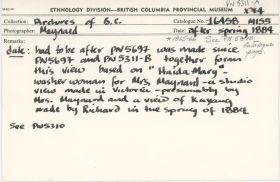 PN 5311-A
ETHNOLOGY DIVISION—BRITISH COLUMBIA PROVINCIAL MUSEUM
Collection: Archives of B.C. Catalogue No. 16458 MISS
Photographer: Maynard Date: after spring 1884
Remarks: See PN 5310
date: had to be after PN5697 was made since
PN5697 and PN5311-B together form
this view based on "Haida Mary" -
washer woman for Mrs. Maynard - a studio
view made in Victoria - presumably by
Mrs. Maynard and a view of Kayang
made by Richard in the spring of 1884.
See PN5310